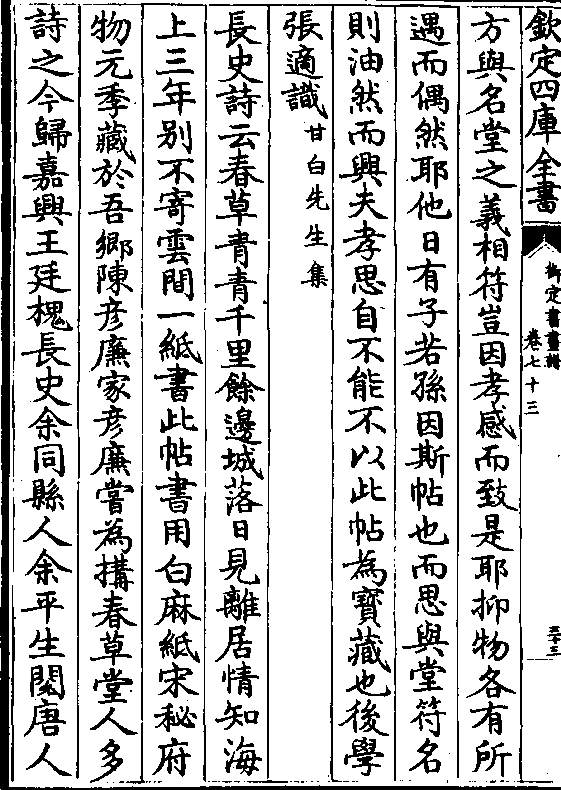 欽定四庫全書
御定書畫譜
卷七十三
三十三
方與名堂之義相符豈因孝感而致是耶抑物各有所
遇而偶然耶他日有子若孫因斯帖也而思與堂符名
則油然而興夫孝思自不能不以此帖為寳藏也後學
張適識甘白先生集
長史詩云春草青青千里餘邊城落日見離居情知海
上三年别不寄雲間一紙書此帖書用白麻紙宋秘府
物元季藏於吾鄉陳彦廉家彦廉嘗為搆春草堂人多
詩之今歸嘉興王廷槐長史余同縣人余平生閱唐人